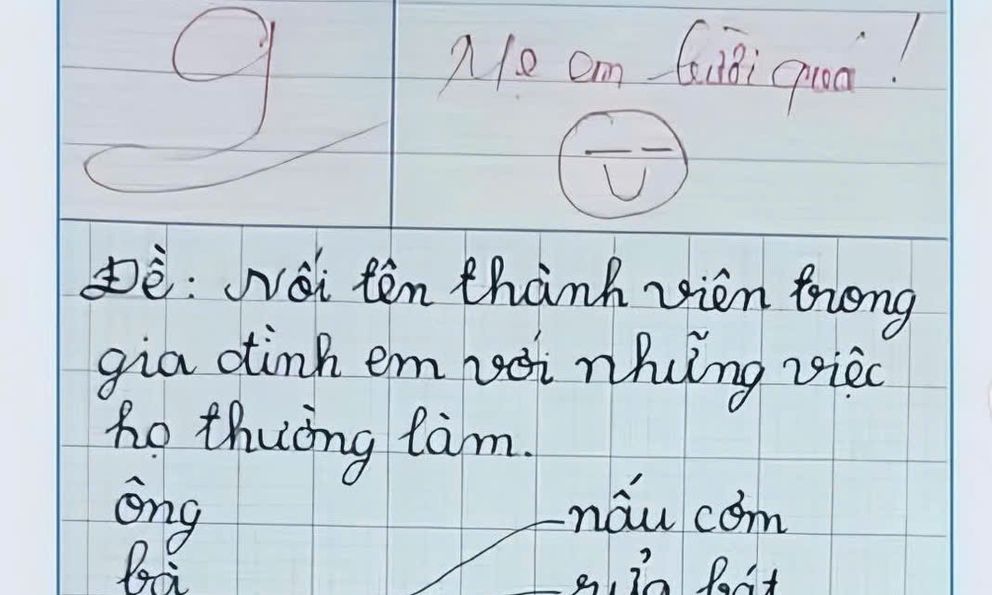 9
Mẹ em lười quá!
Đề: Nối tên thành viên trong
gia đình em với những việc
họ thường làm.
ông
nấu cơm
bà
rửa bát